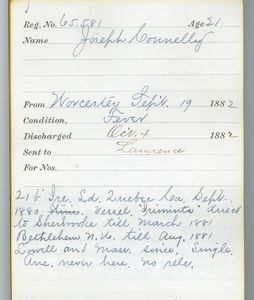 Reg. No. 65,581 Age 21
Name Joseph Connelly
From Worcester Sept. 19 1882
Condition, Fever
Discharged Oct. 4 1882
Sent to Lawrence
For Nos.
21 b Ire. Ld. Quebec Ca. Sept.
1880 Vessel. direct
to Sherbrooke till March 1881
Bethlehem N.H. till Aug. 1881
Lowell and Mass. since. Single.
Anc. never here. no rels.